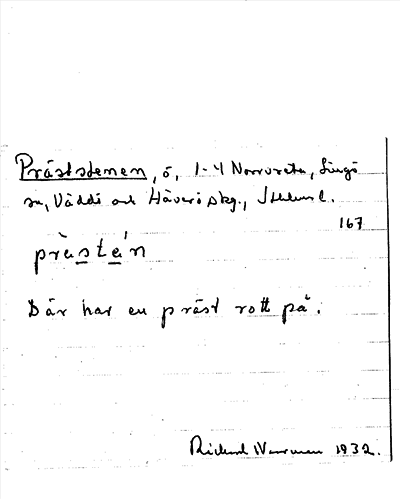 Prästsstenen, ö, 1-4 Norrvreta, Singö
sn, Väddö och Häverö skg., Sthlms l.
167
prὰsté̀n
Där har en präst rott på.
Rickard Wennman 1932.